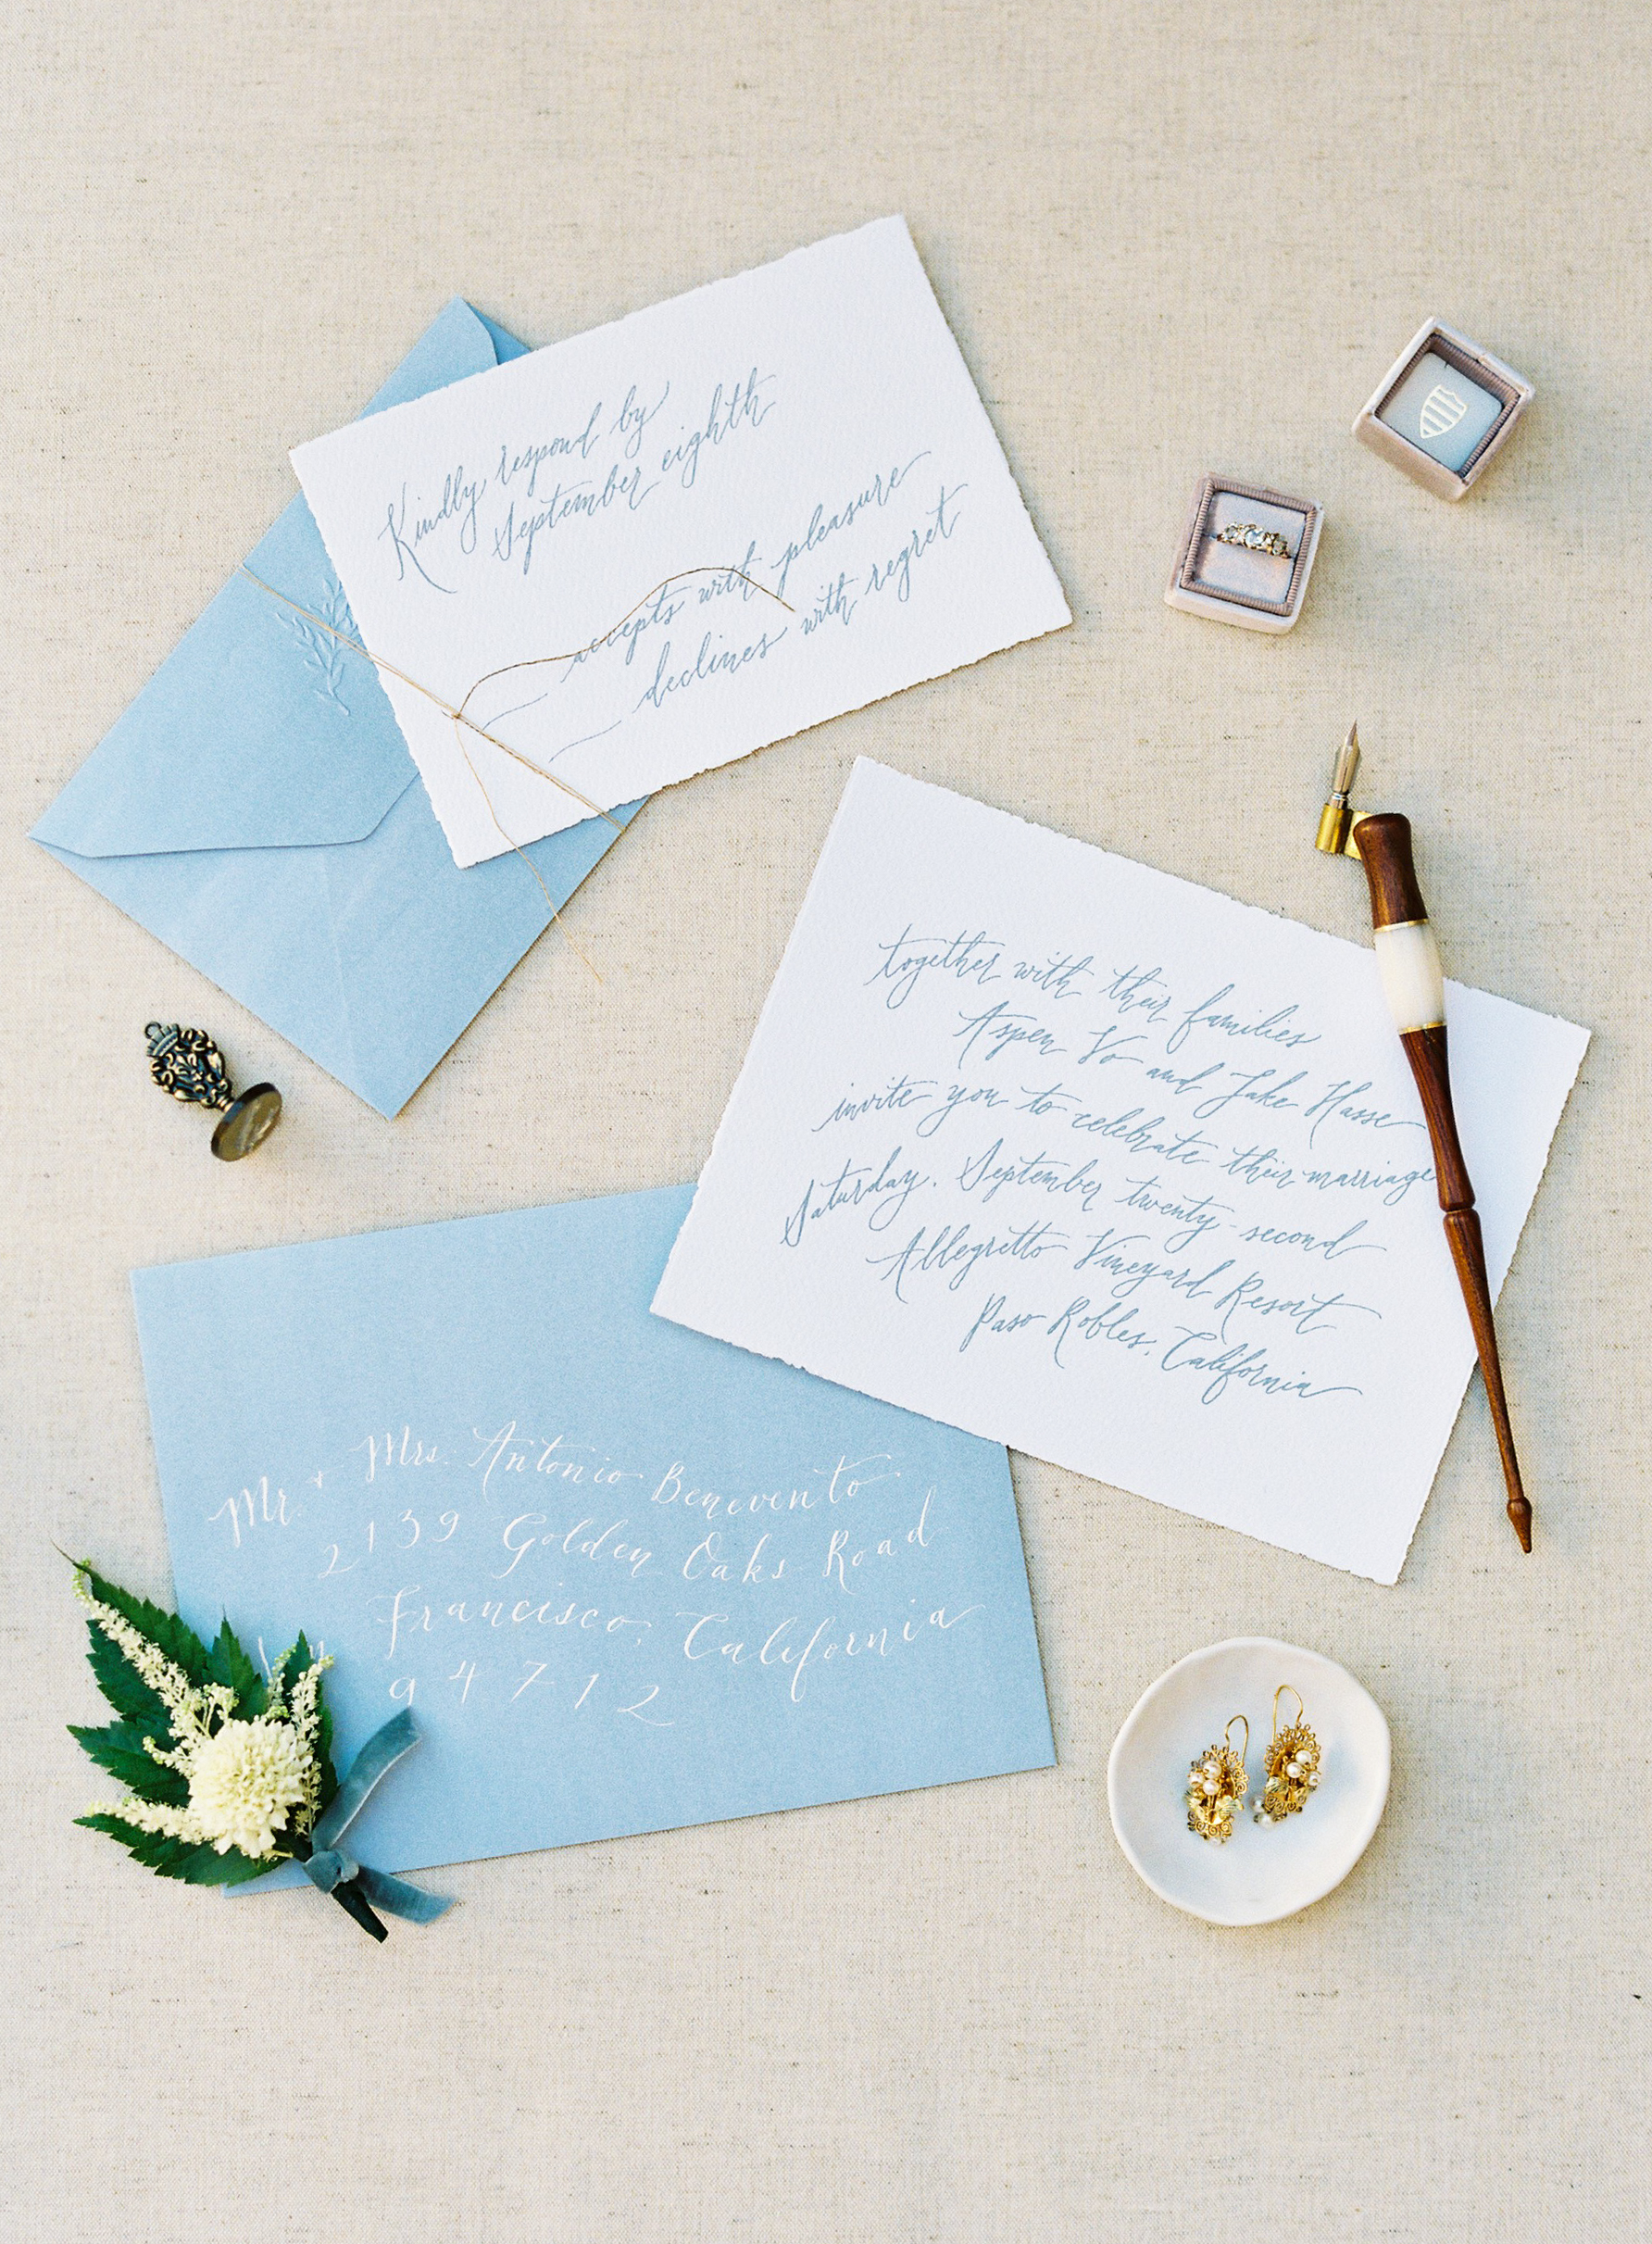 Kindly respond by
September eighth
accepts with pleasure
declines with regret
together with their families
Aspen Vo and Jake Hasse
invite you to celebrate their marriage
Saturday, September twenty-second
Allegretto Vineyard Resort
Paso Robles, California
Mr. + Mrs. Antonio Benevento
2139 Golden Oaks Road
Francisco, California
94712